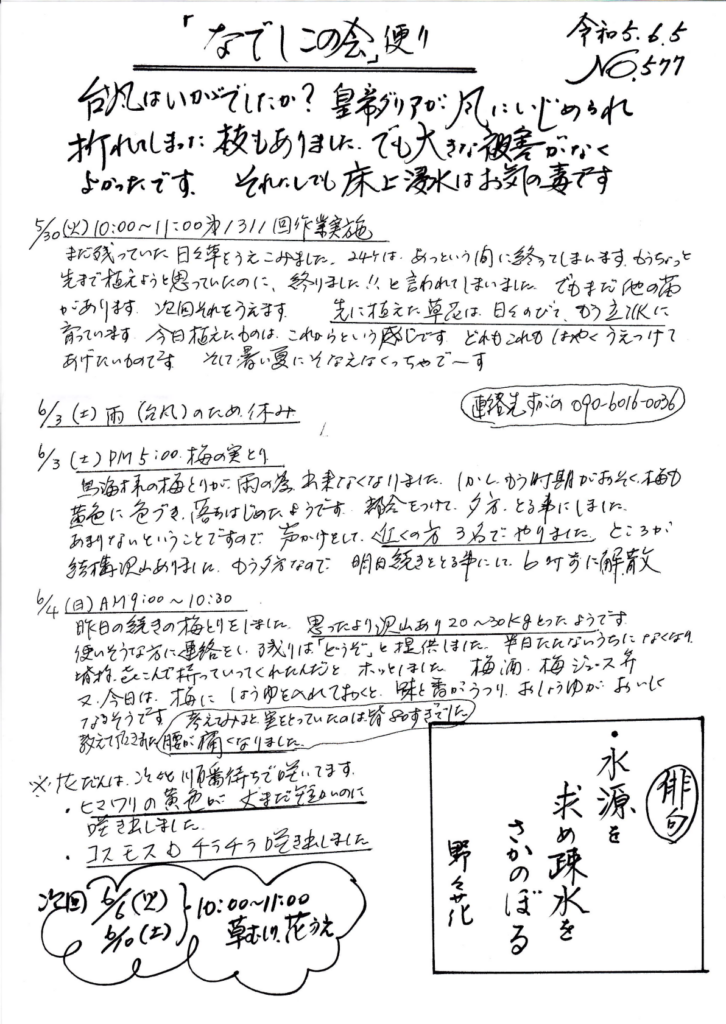 「なでしこの会」便り
令和5.6.5
NO.577
台風はいかがでしたか? 皇帝ダリアが風にいじめられ
折れてしまった枝もありました。でも大きな被害がなく
よかったです。 それにしても床上浸水はお気の毒です
5/30(火)10:00〜11:00 第1311回作業実施
まだ残っていた日々草をうえこみました。24ケは、あっという間に終ってしまいます。もうちょっと
先まで植えようと思っていたのに、終りました!!と言われてしまいました でもまだ他の苗
があります。次回それをうえます。 先に植えた草花は、日々のびて、もう立派に
育っています。今日植えたものは、これからという感じです。どれもこれもはやくうえつけて
あげたいものです そして暑い夏にそなえなくっちゃで〜す
6/3(土)雨(台風)のため休み
連絡先すがの090-6016-0036
6/3(土)PM5:00.梅の実とり
の梅とりが、雨の為、出来なくなりました。しかし、もう時期がおそく、梅も
黄色に色づき、落ちはじめたようです。都合をつけて、夕方、とる事にしました。
あまりないということですので、声かけをして、近くの方3名でやりました。ところが
結構沢山ありました。もう夕方なので 明日続きをとる事にして、6時前に解散
6/4(日)AM9:00〜10:30
昨日の続きの梅とりをしました。思ったより沢山あり20〜30Kgとったようです。
使いそうな方に連絡をし、残りは「どうぞ」と提供しました。半日たたないうちになくなり、
皆様、よろこんで持っていってくれたんだと ホッとしました 梅酒、梅ジュース
又、今日は、梅に しょうゆを入れておくと、味と香がうつり、おしょうゆが、おいしく
なるそうです 考えてみると実をとっていたのは皆80すぎでした
教えて下さった 腰が痛くなりました。
※花だんは、次々順番待ちで咲いてます。
・ヒマワリの黄色が、丈まだ短いのに
咲き出しました。
・コスモスもチラチラ咲き出しました
次回 6/6(火)
6/10(土)
10:00〜11:00
草むしり、花うえ
俳句
・水源を
求め疎水を
さかのぼる
野々花